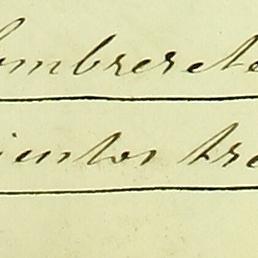 ombrerete
ientos tre